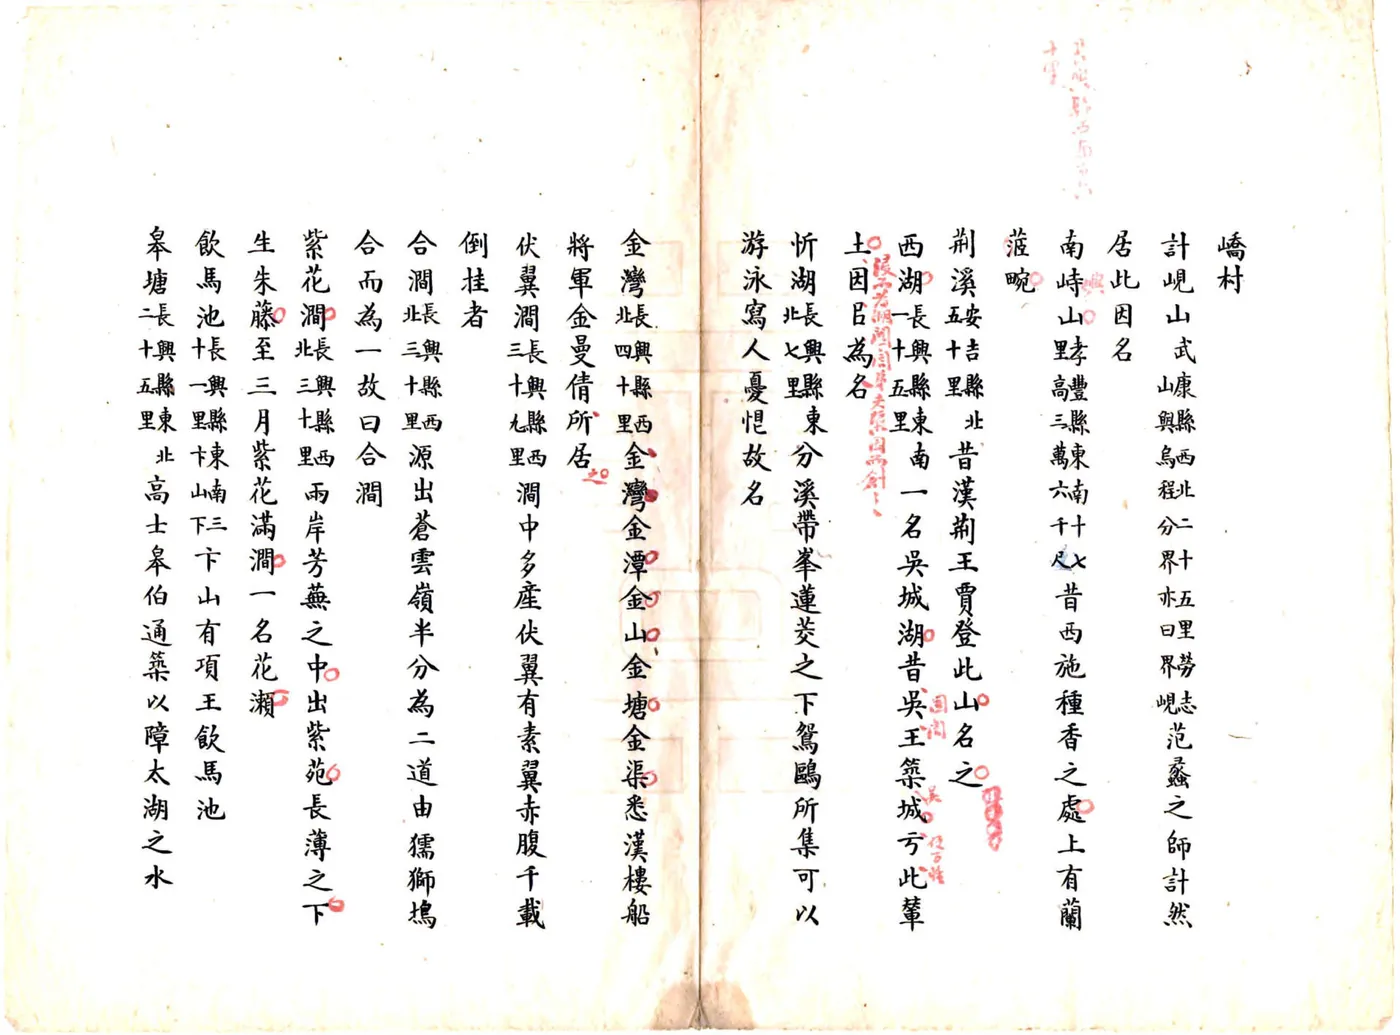 嶠村
計峴山武康縣西北二十五里勞志山與烏程分界亦曰界峴范蠡之師計然
居此因名
南峙山孝豐縣東南十七里高三萬六千尺昔西施種香之處上有蘭
茝畹
荆溪安吉縣北五十里昔漢荆王賈登此山名之
西湖長興縣東南一十五里一名吳城湖昔吳王築城亏此輦
土因㠯為名
忻湖長興縣東北七里分溪帶峯蓮茭之下鴛鷗所集可以
游泳寫人憂悒故名
金灣長興縣西北四十里金灣金潭金山金塘金渠悉漢樓船
將軍金曼倩所居
之
伏翼澗長興縣西三十九里澗中多產伏翼有素翼赤腹千載
倒挂者
合澗長興縣西北三十里源出蒼雲嶺半分為二道由獳獅塢
合而為一故曰合澗
紫花澗長興縣西北三十里兩岸芳蕪之中出紫苑長薄之下
生朱藤至三月紫花滿澗一名花瀨
飲馬池長興縣東南三十一里卞山下卞山有項王飲馬池
皋塘長興縣東北二十五里高士皋伯通築以障太湖之水